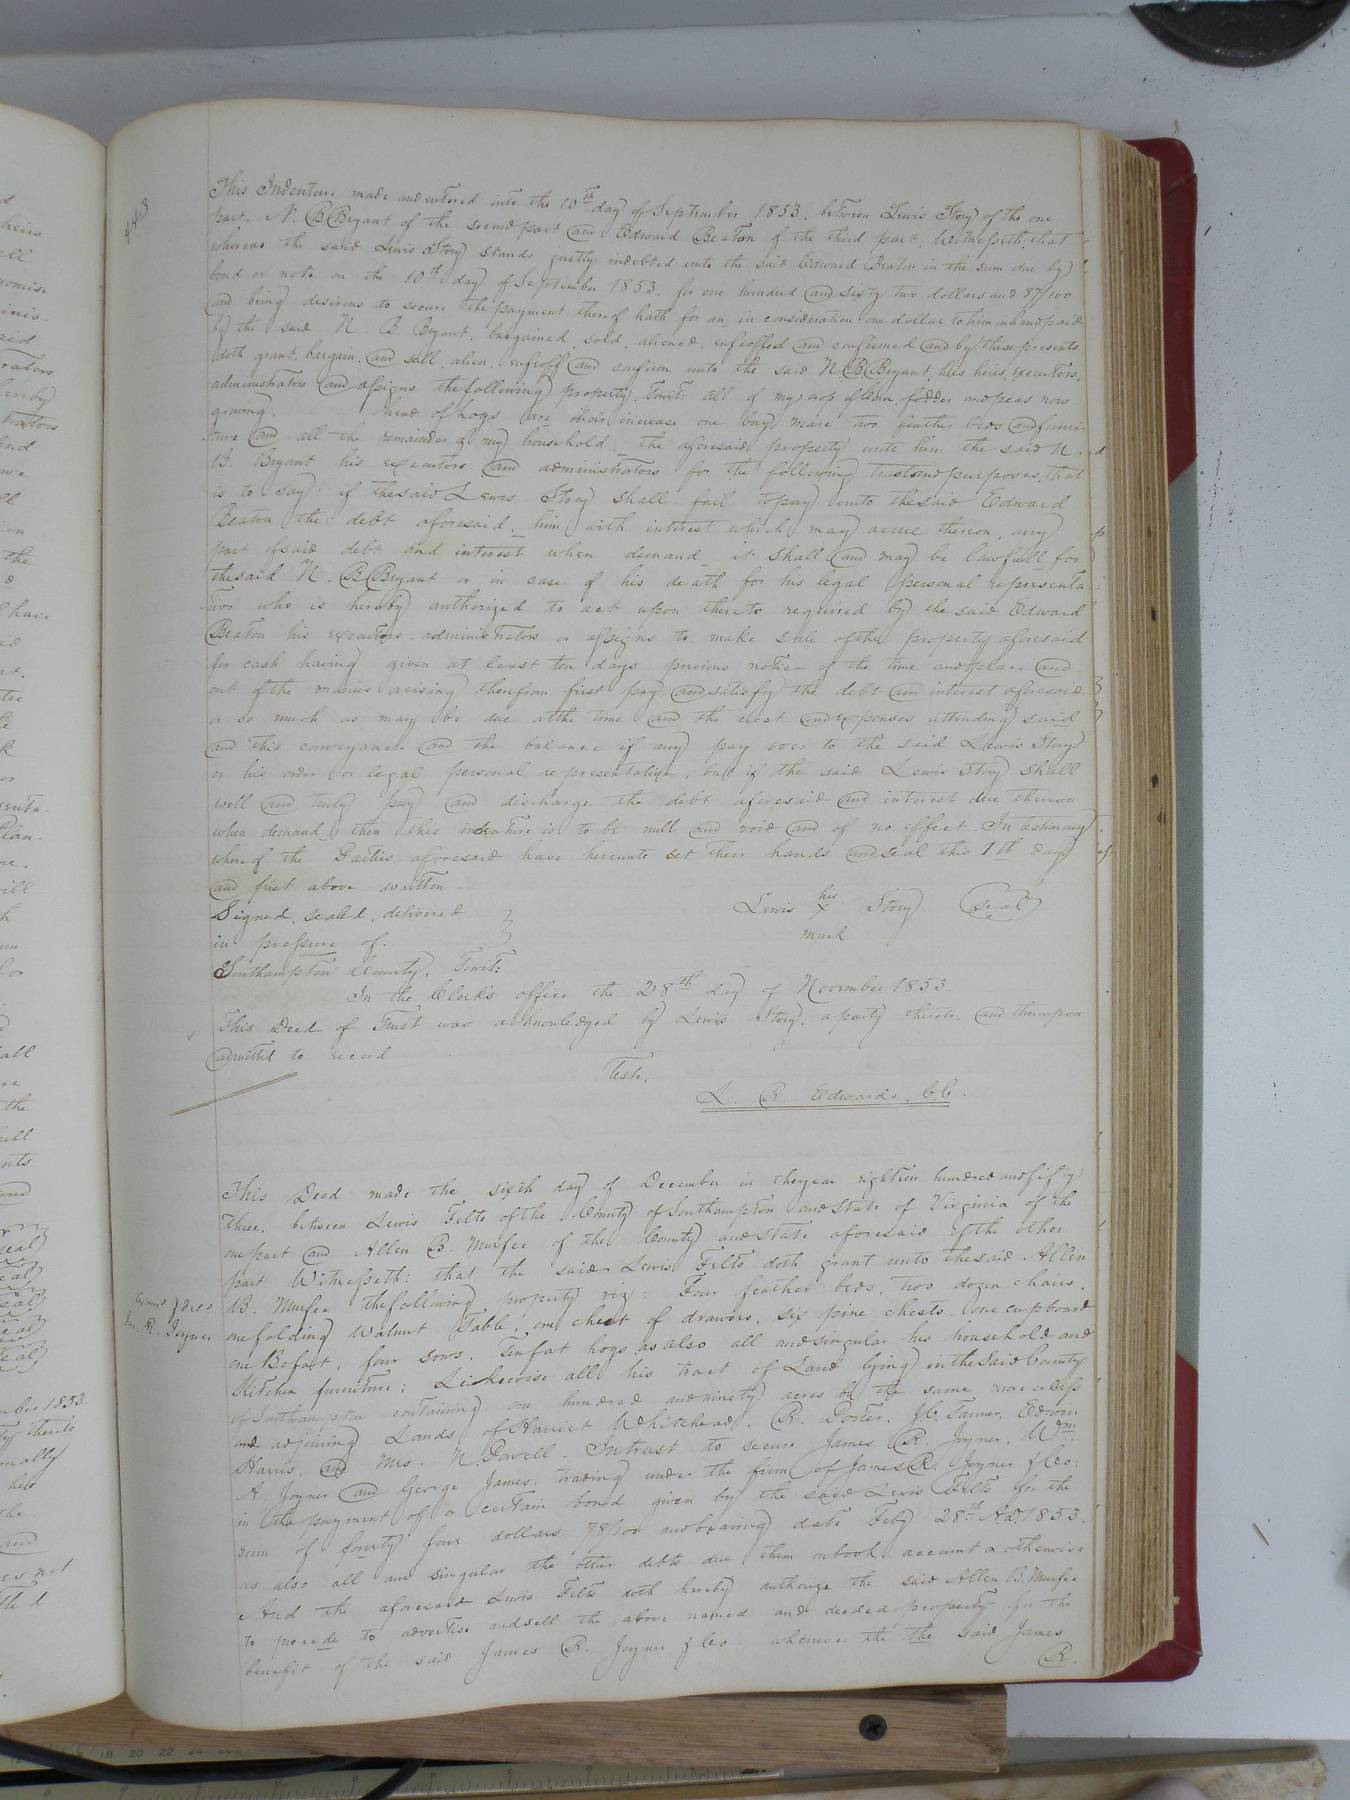 443
This Indenture made and entered into the 10th day of September 1853. between Lewis Story of the one
part. N. B Bryant of the second part and Edward Beaton of the third part. Witnesseth: that
whereas the said Lewis Story stands justly indebted unto the said Edward Beaton in the sum due by
bond or note on the 10th day of September 1853. for one hundred and sixty two dollars and 87/100
and being desirous to secure the payment thereof hath for an in consideration one dollar to him in hand paid
by the said N. B. Bryant. bargained, sold, aliened, enfeoffed and confirmed and by these presents
doth grant, bargain, and sell, alien, enfeoff and confirm unto the said N B Bryant, his heirs, executors,
administrators and assigns the following property. Towit: all of my crop of Corn, fodder and peas now
growing. head of hogs are their increase one bay mare two feather beds and furni-
ture and all the remainder of my household the aforesaid property unto him the said N.
B. Bryant his executors and administrators for the following trusts and purposes, that
is to say: if the said Lewis Story shall fail to pay unto the said Edward
Beaton the debt aforesaid, him with interest which may acrue thereon, any
part of said debt and interest when demand it shall and may be lawfull for
the said N. B Bryant or in case of his death for his legal personal representa
tive who is hereby authorized to act upon thereto required by the said Edward
Beaton his executors, administrators or assigns to make sale of the property aforesaid
for cash having given at least ten days previous notice of the time and place and
out of the monies arising therefrom first pay and satisfy the debt and interest aforesaid
or so much as may be due at the time and the cost and expenses attending said
and this conveyance and the balance if any pay over to the said Lewis Story
or his order or legal personal representative, but if the said Lewis Story shall
well and truly pay and discharge the debt aforesaid and interest due thereon
when demand then this indenture is to be null and void and of no effect. In testimony
when of the Parties aforesaid have hereunto set their hands and seal this 1th day
and first above written.
Signed, sealed, delivered
in pressure of.
Lewis his X mark Story (Seal)
Southampton County. Towit:
In the Clerk's office the 28th day of November 1853.
This Deed of Trust was acknowledged by Lewis Story. a party thereto, and thereupon
admitted to record
Teste.
L. R Edwards. C.C.
This Deed made the sixth day of December in the year eighteen hundred and fifty
three. between Lewis Felts of the County of Southampton and State of Virginia of the
one part and Allen B. Murfee of the County and State aforesaid of the other
part Witnesseth: that the said Lewis Felts doth grant unto the said Allen
B. Murfee the following property viz: Four feather beds, two dozen chairs,
Jas. R. Joyner
one folding Walnut Table, one chest of drawers, six pine chests. one cupboard
one Bofact, four sows. Ten fat hogs as also all and singular his household and
Kitchen furniture; Likewise all his tract of Land lying in the Said County
of Southampton containing one hundred and ninety acres be the same more or less
and adjoining Lands of Harriet Whitehead, R. Porter, J.C. Turner, Edwin
Harris, and Mrs. N. Powell. In trust to secure James R. Joyner, Wm
A. Joyner and George James. trading under the firm of James R. Joyner & Co:
in the payment of a certain bond given by the said Lewis Felts for the
sum of fourty four dollars 78/100 and bearing date Feby 28th A.D. 1853.
as also all and singular the other debts due them on book account or otherwise
And the aforesaid Lewis Felts doth hereby authorize the said Allen B. Murfee
to procede to advertise and sell the above named and deeded property for the
benefit of the said James R. Joyner & Co whenever the the said James
R.